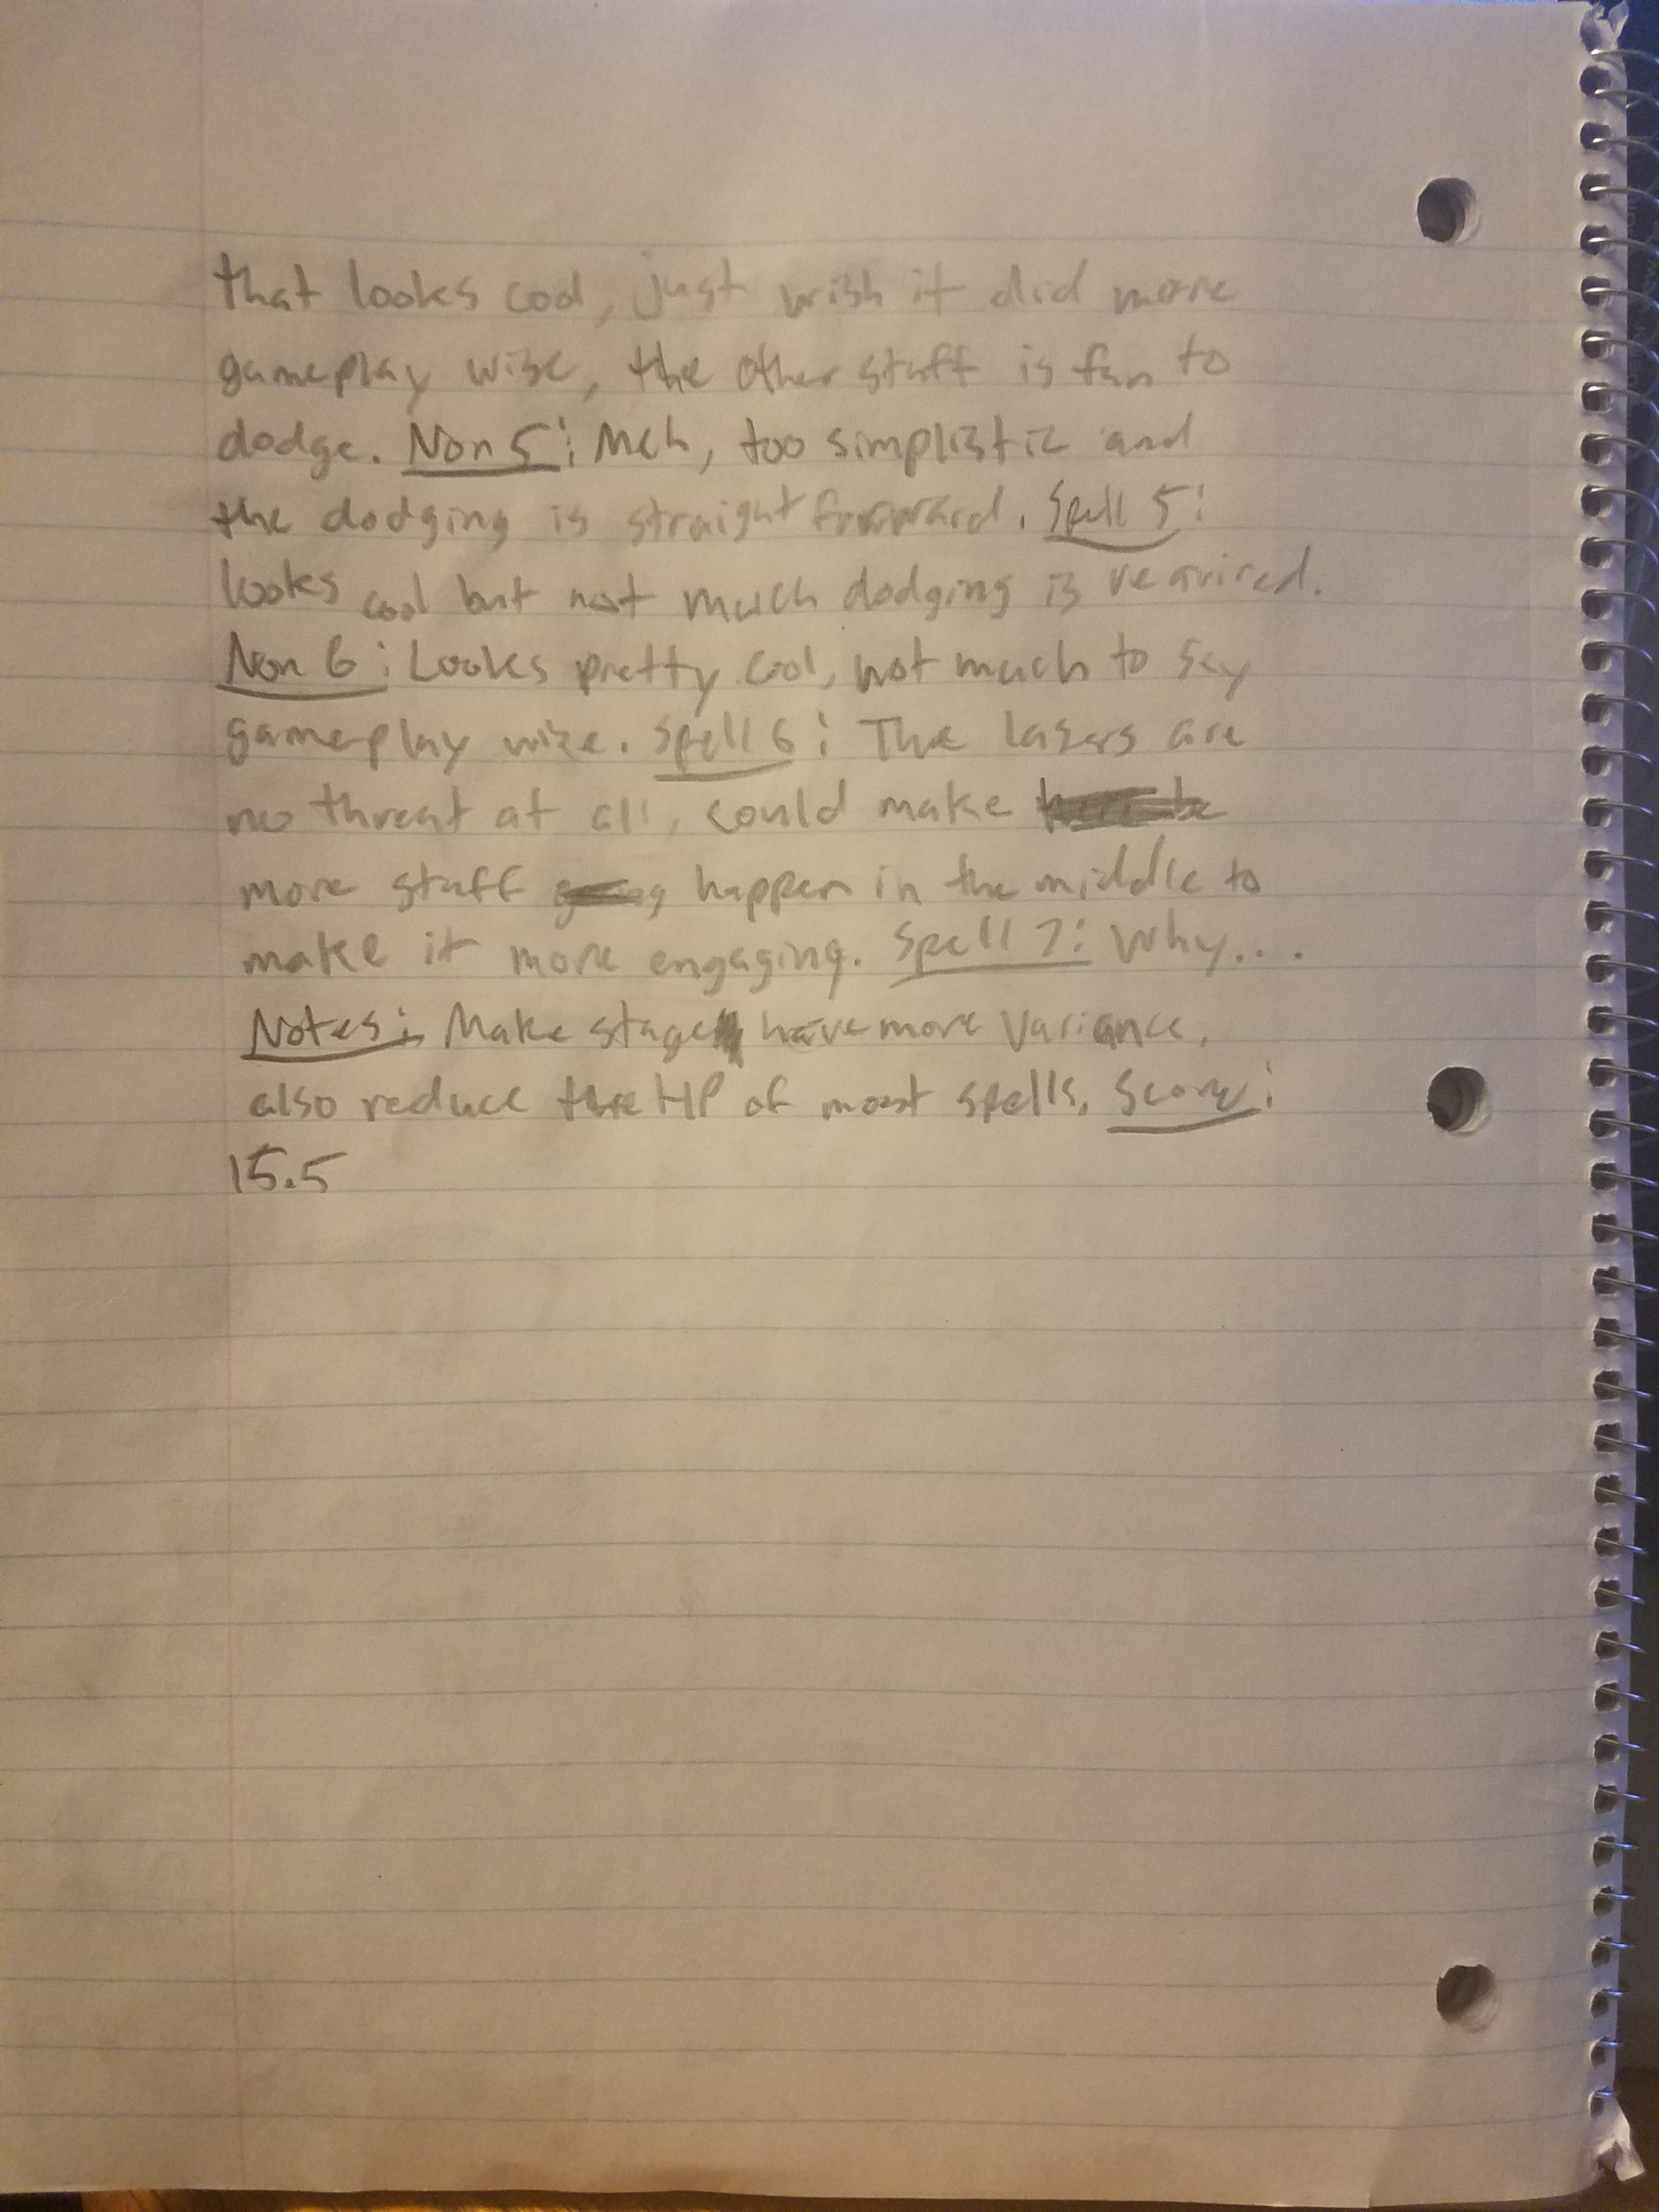 that looks cool, just wish it did more
gameplay wise, the other stuff is fun to
dodge. Non 5: Meh, too simplistic and
the dodging is straight forward. Spell 5:
looks cool but not much dodging is required.
Non 6: Looks pretty cool, not much to say
gameplay wise. Spell 6: The lasers are
no threat at all, could make
more stuff happen in the middle to
make it more engaging. Spell 7: Why...
Notes: Make stage have more variance,
also reduce the HP of most spells. Score:
15.5